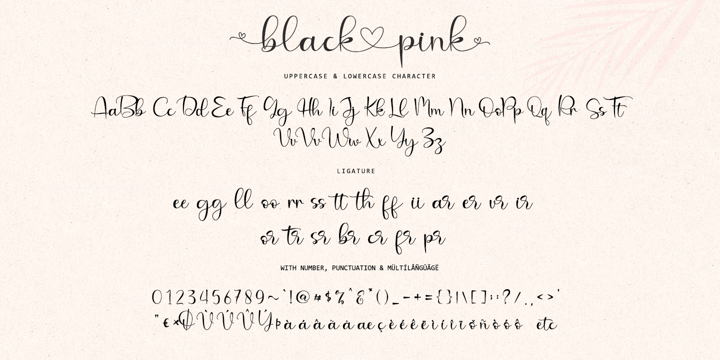 black pink
UPPERCASE & LOWERCASE CHARACTER
AaBb Cc Dd Ee Ff Gg Hh Ii Jj Kk Ll Mm Nn OoPp Qq Rr Ss Tt
VvVv Ww Xx Yy Zz
LIGATURE
ee gg ll oo rr ss tt th ff ii ar er vr ir
or tr sr br cr fr pr
WITH NUMBER, PUNCTUATION & MÜLTÍLÂÑGÜÄGË
0123456789~`!@#$%^&*()_-+={}|\[]:;?/.,<>'
"€×
etc